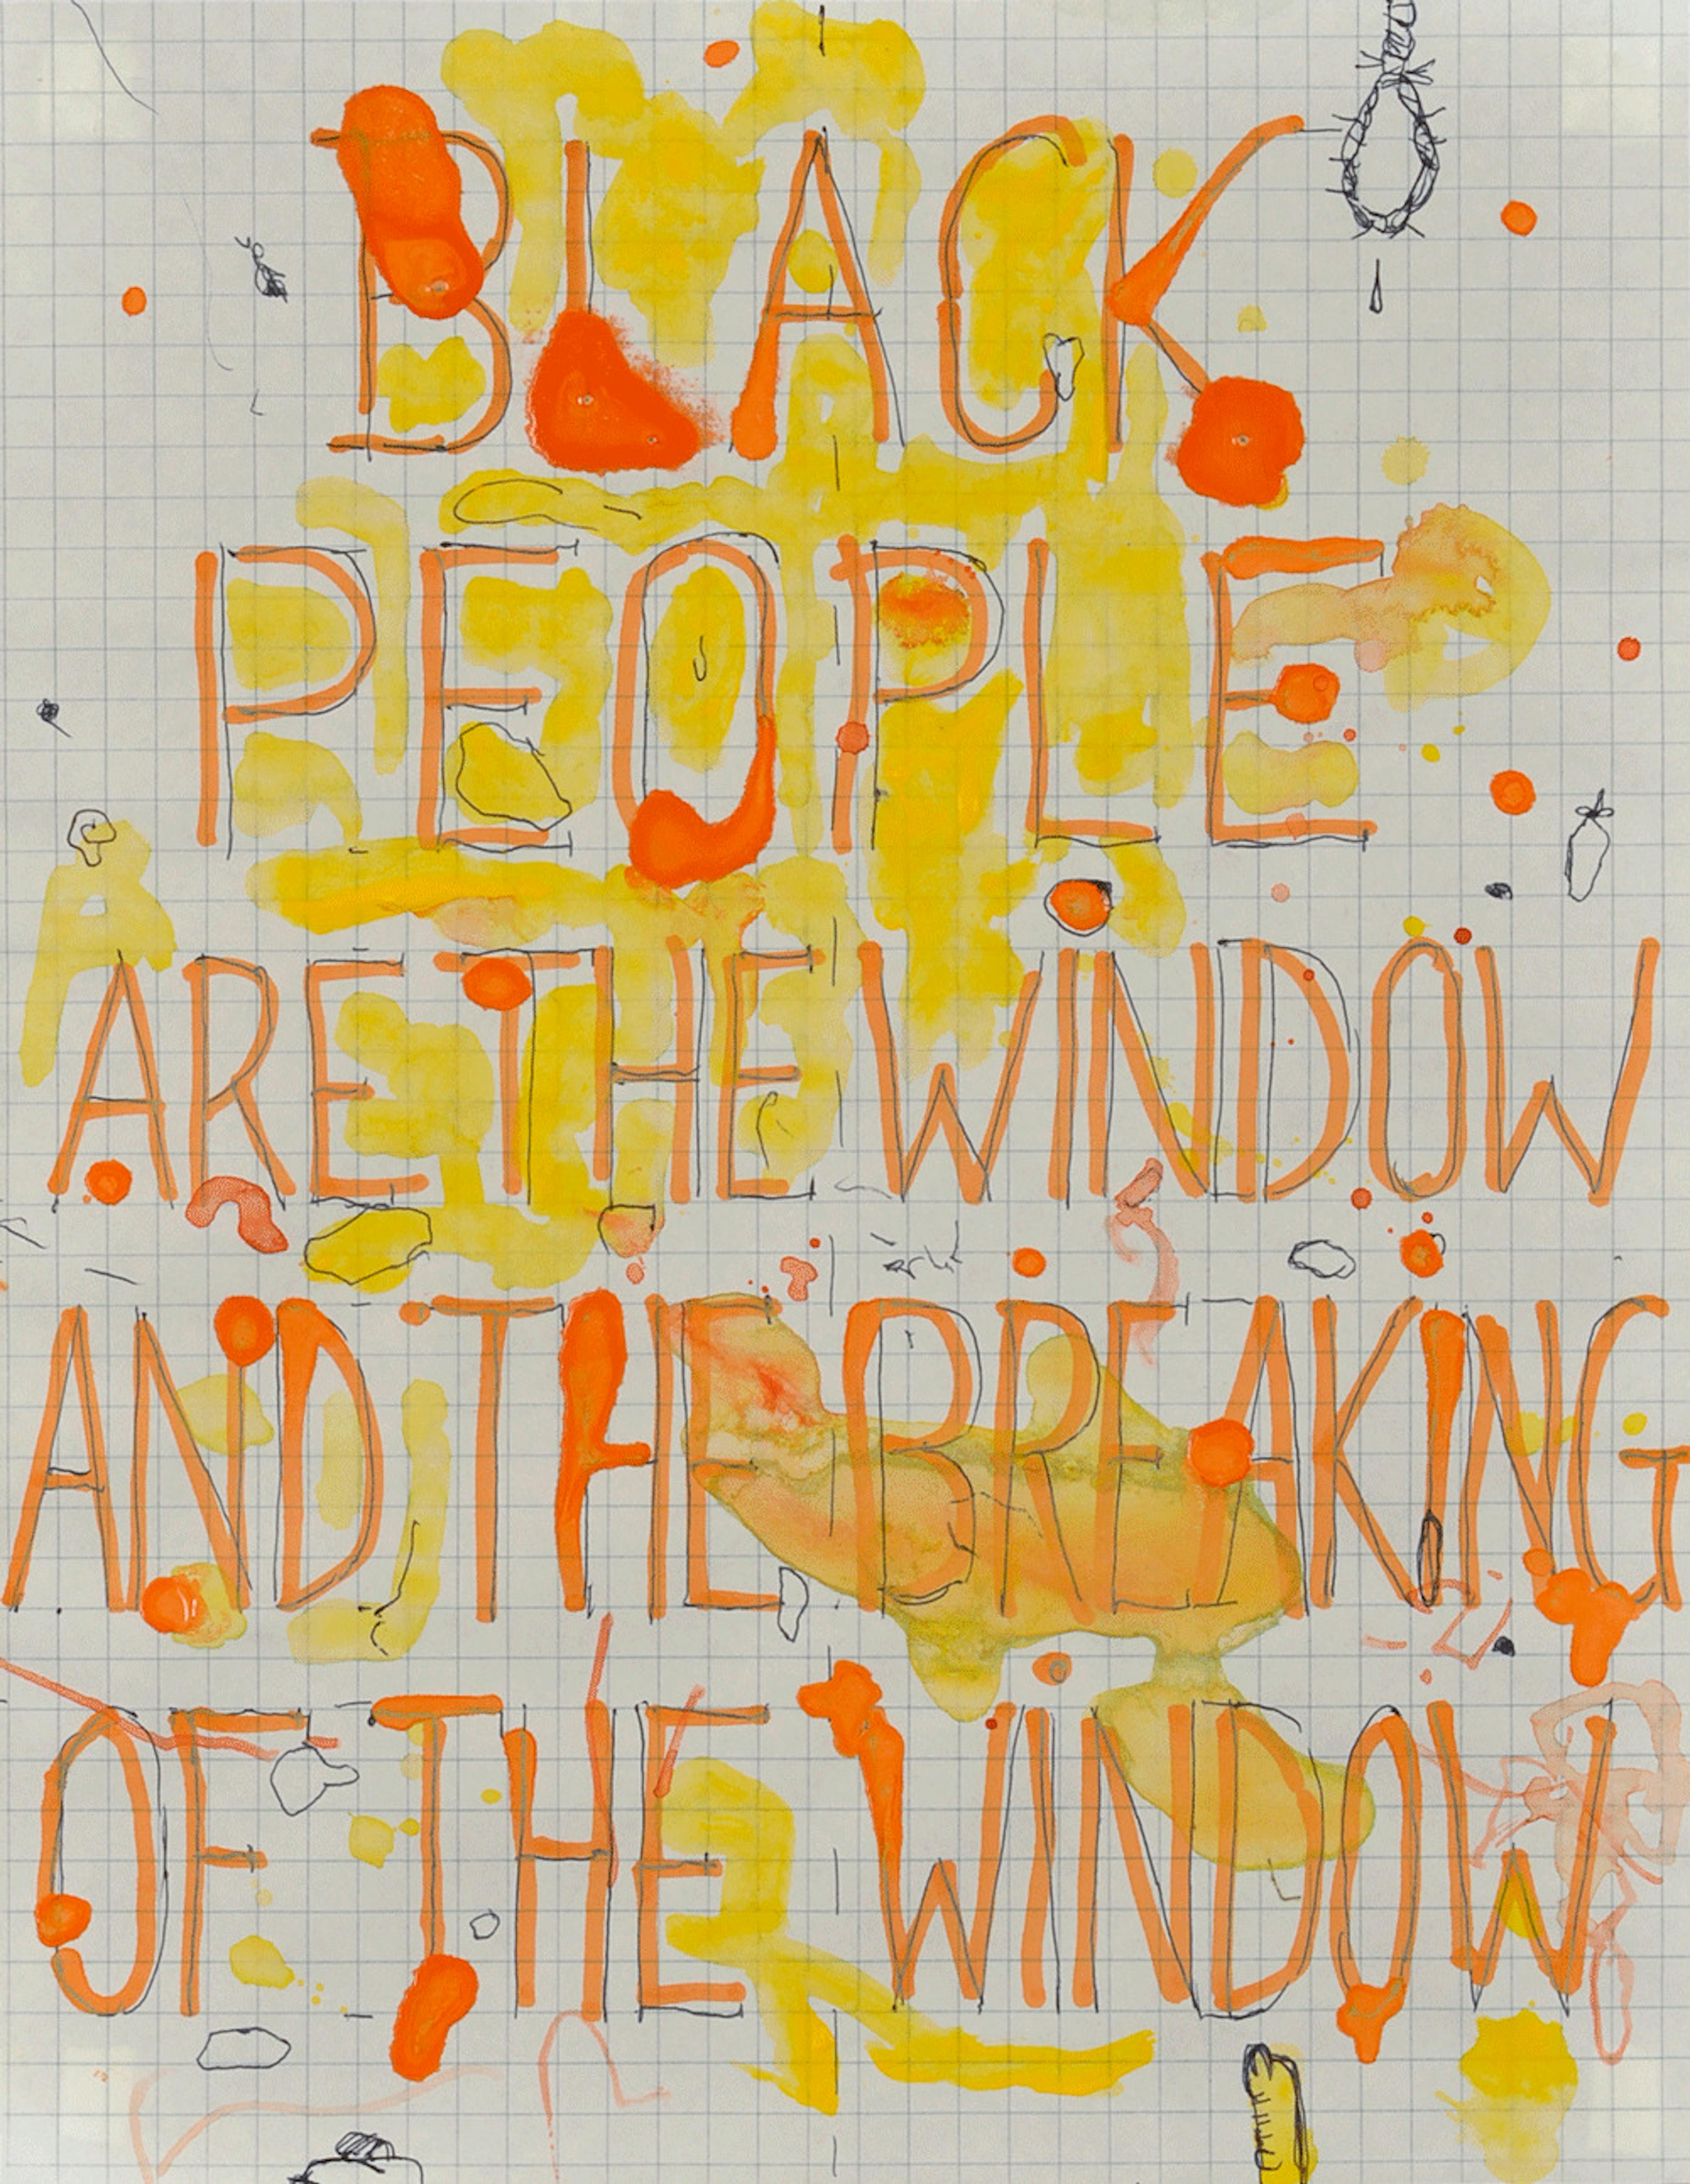 BLACK
PEOPLE
ARE THE WINDOW
AND THE BREAKING
OF THE WINDOW